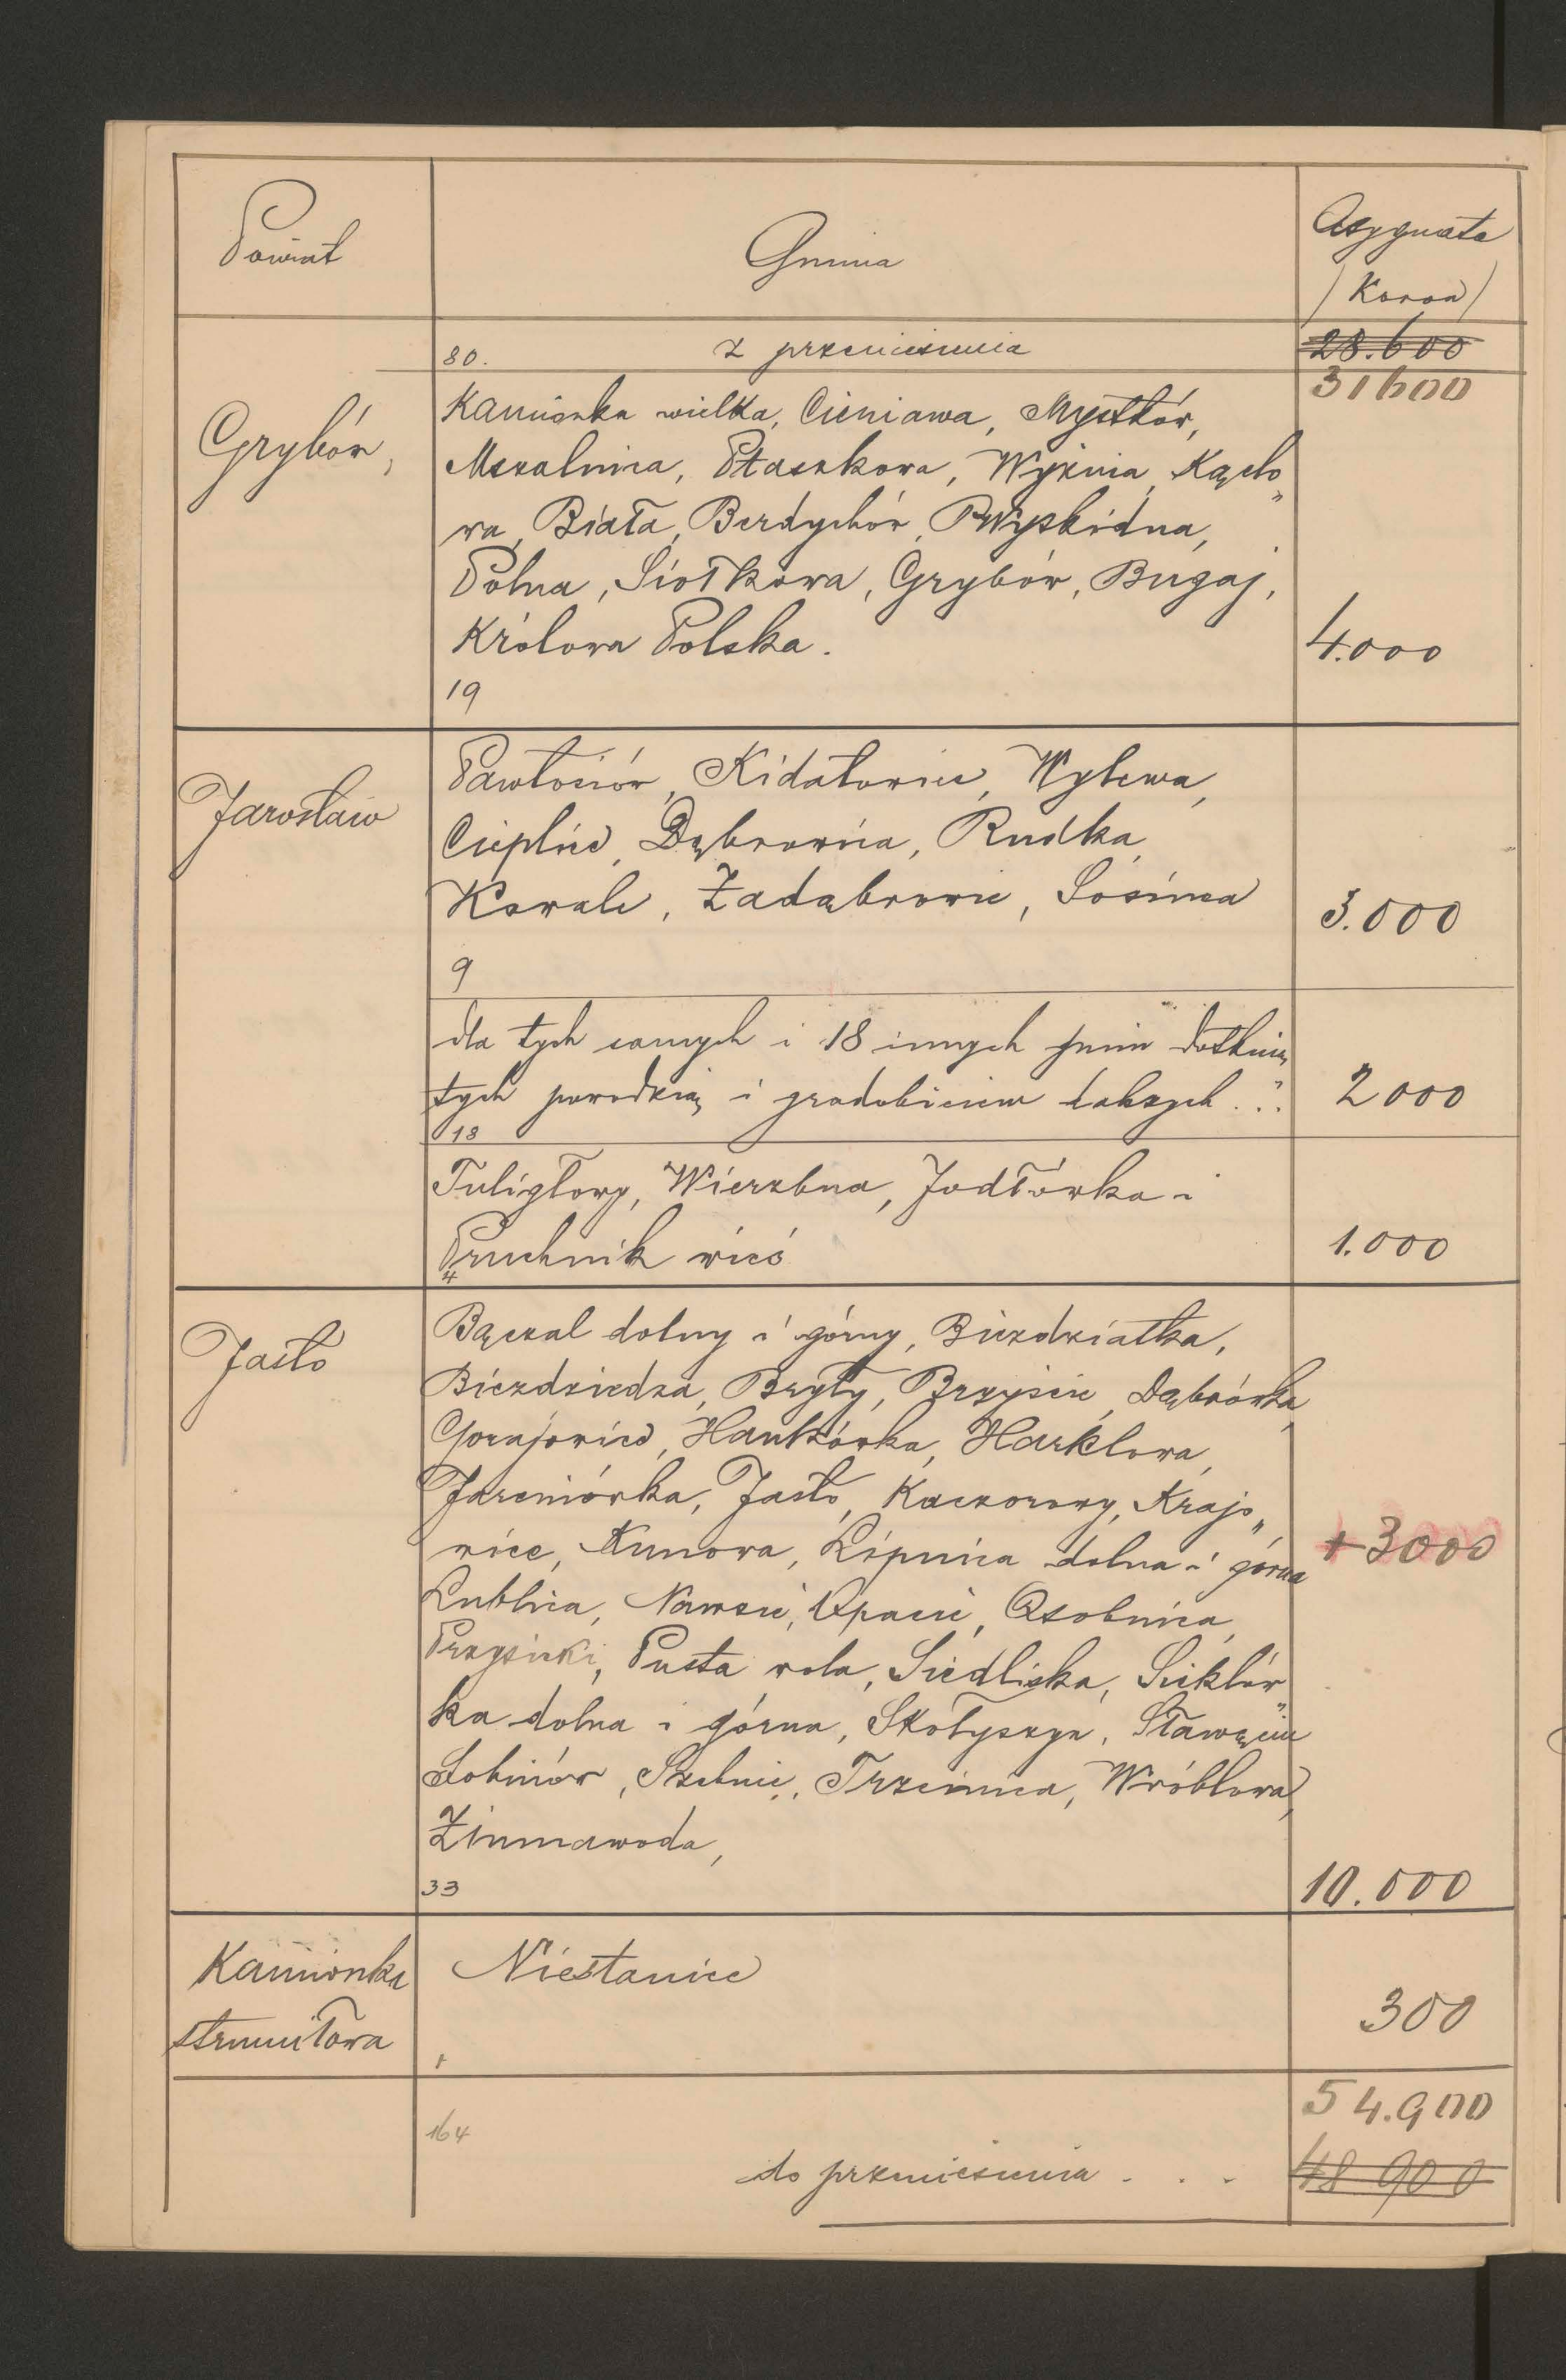 Powiat
Gmina
Asygnata
/Koron/
80. z przeniesienia 28.600
31600
Grybów,
Kamionka wielka, Cieniawa, Mystków,
Mszalnica, Ptaszkowa, Wyżnia, Kąclo„
wa, Biała, Berdychów, Wyskidna,
Polna, Siołkowa, Grybów, Bugaj,
Królowa Polska. 4.000
19
Jarosław
Pawłosiów, Kidałowice, Wylewa,
Cieplice, Dąbrowica, Rudka,
Kowale, Zadąbrowie, Sośnica 3.000
9
dla tych samych i 18 innych gmin dotknię
tych powodzią i gradobiciem dalszych... 2000
18
Tuligłowy, Wierzbna, Jodłówka i
Pruchnik wieś 1.000
4
Jasło
Bączal dolny i górny, Biezdziatka,
Bieździedza, Bryły, Brzyście, Dąbrówka,
Gorajowice, Hankówka, Harklowa,
Jareniówka, Jasło, Kaczorowy, Krajo„
wice, Kunowa, Lipnica dolna i górna + 3000
Lublica, Nawsie, Opacie, Osobnica,
Przysieki, Pusta wola, Siedliska, Sieklów„
ka dolna i górna, Skołyszyn, Sławęcin
Sobniów, Szebnie, Trzcinica, Wróblowa,
Zimnawoda,
33 10.000
Kamionka
strumiłowa
Niestanice 300
1
54.900
164
do przeniesienia . . . 48 900